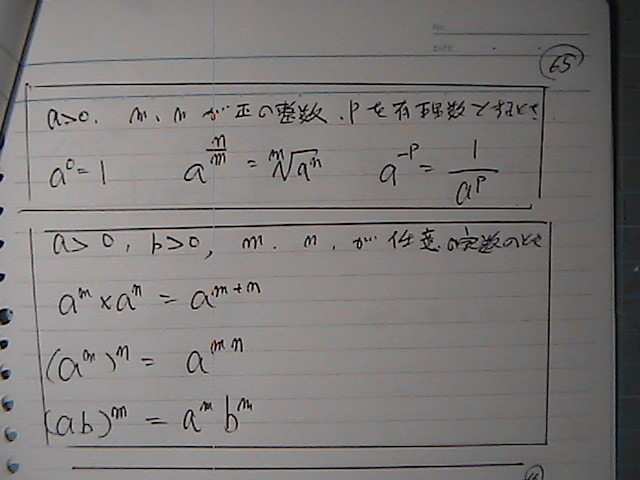 No.
DATE
65
a>0. m、n が正の整数、pを有理数とするとき
a⁰=1 a^(n/m) = ᵐ√aⁿ a^(-p) = 1/a^p
a>0, b>0, m. n. が任意の実数のとき
a^m × a^n = a^(m+n)
(a^m)^n = a^(mn)
(ab)^m = a^m b^m